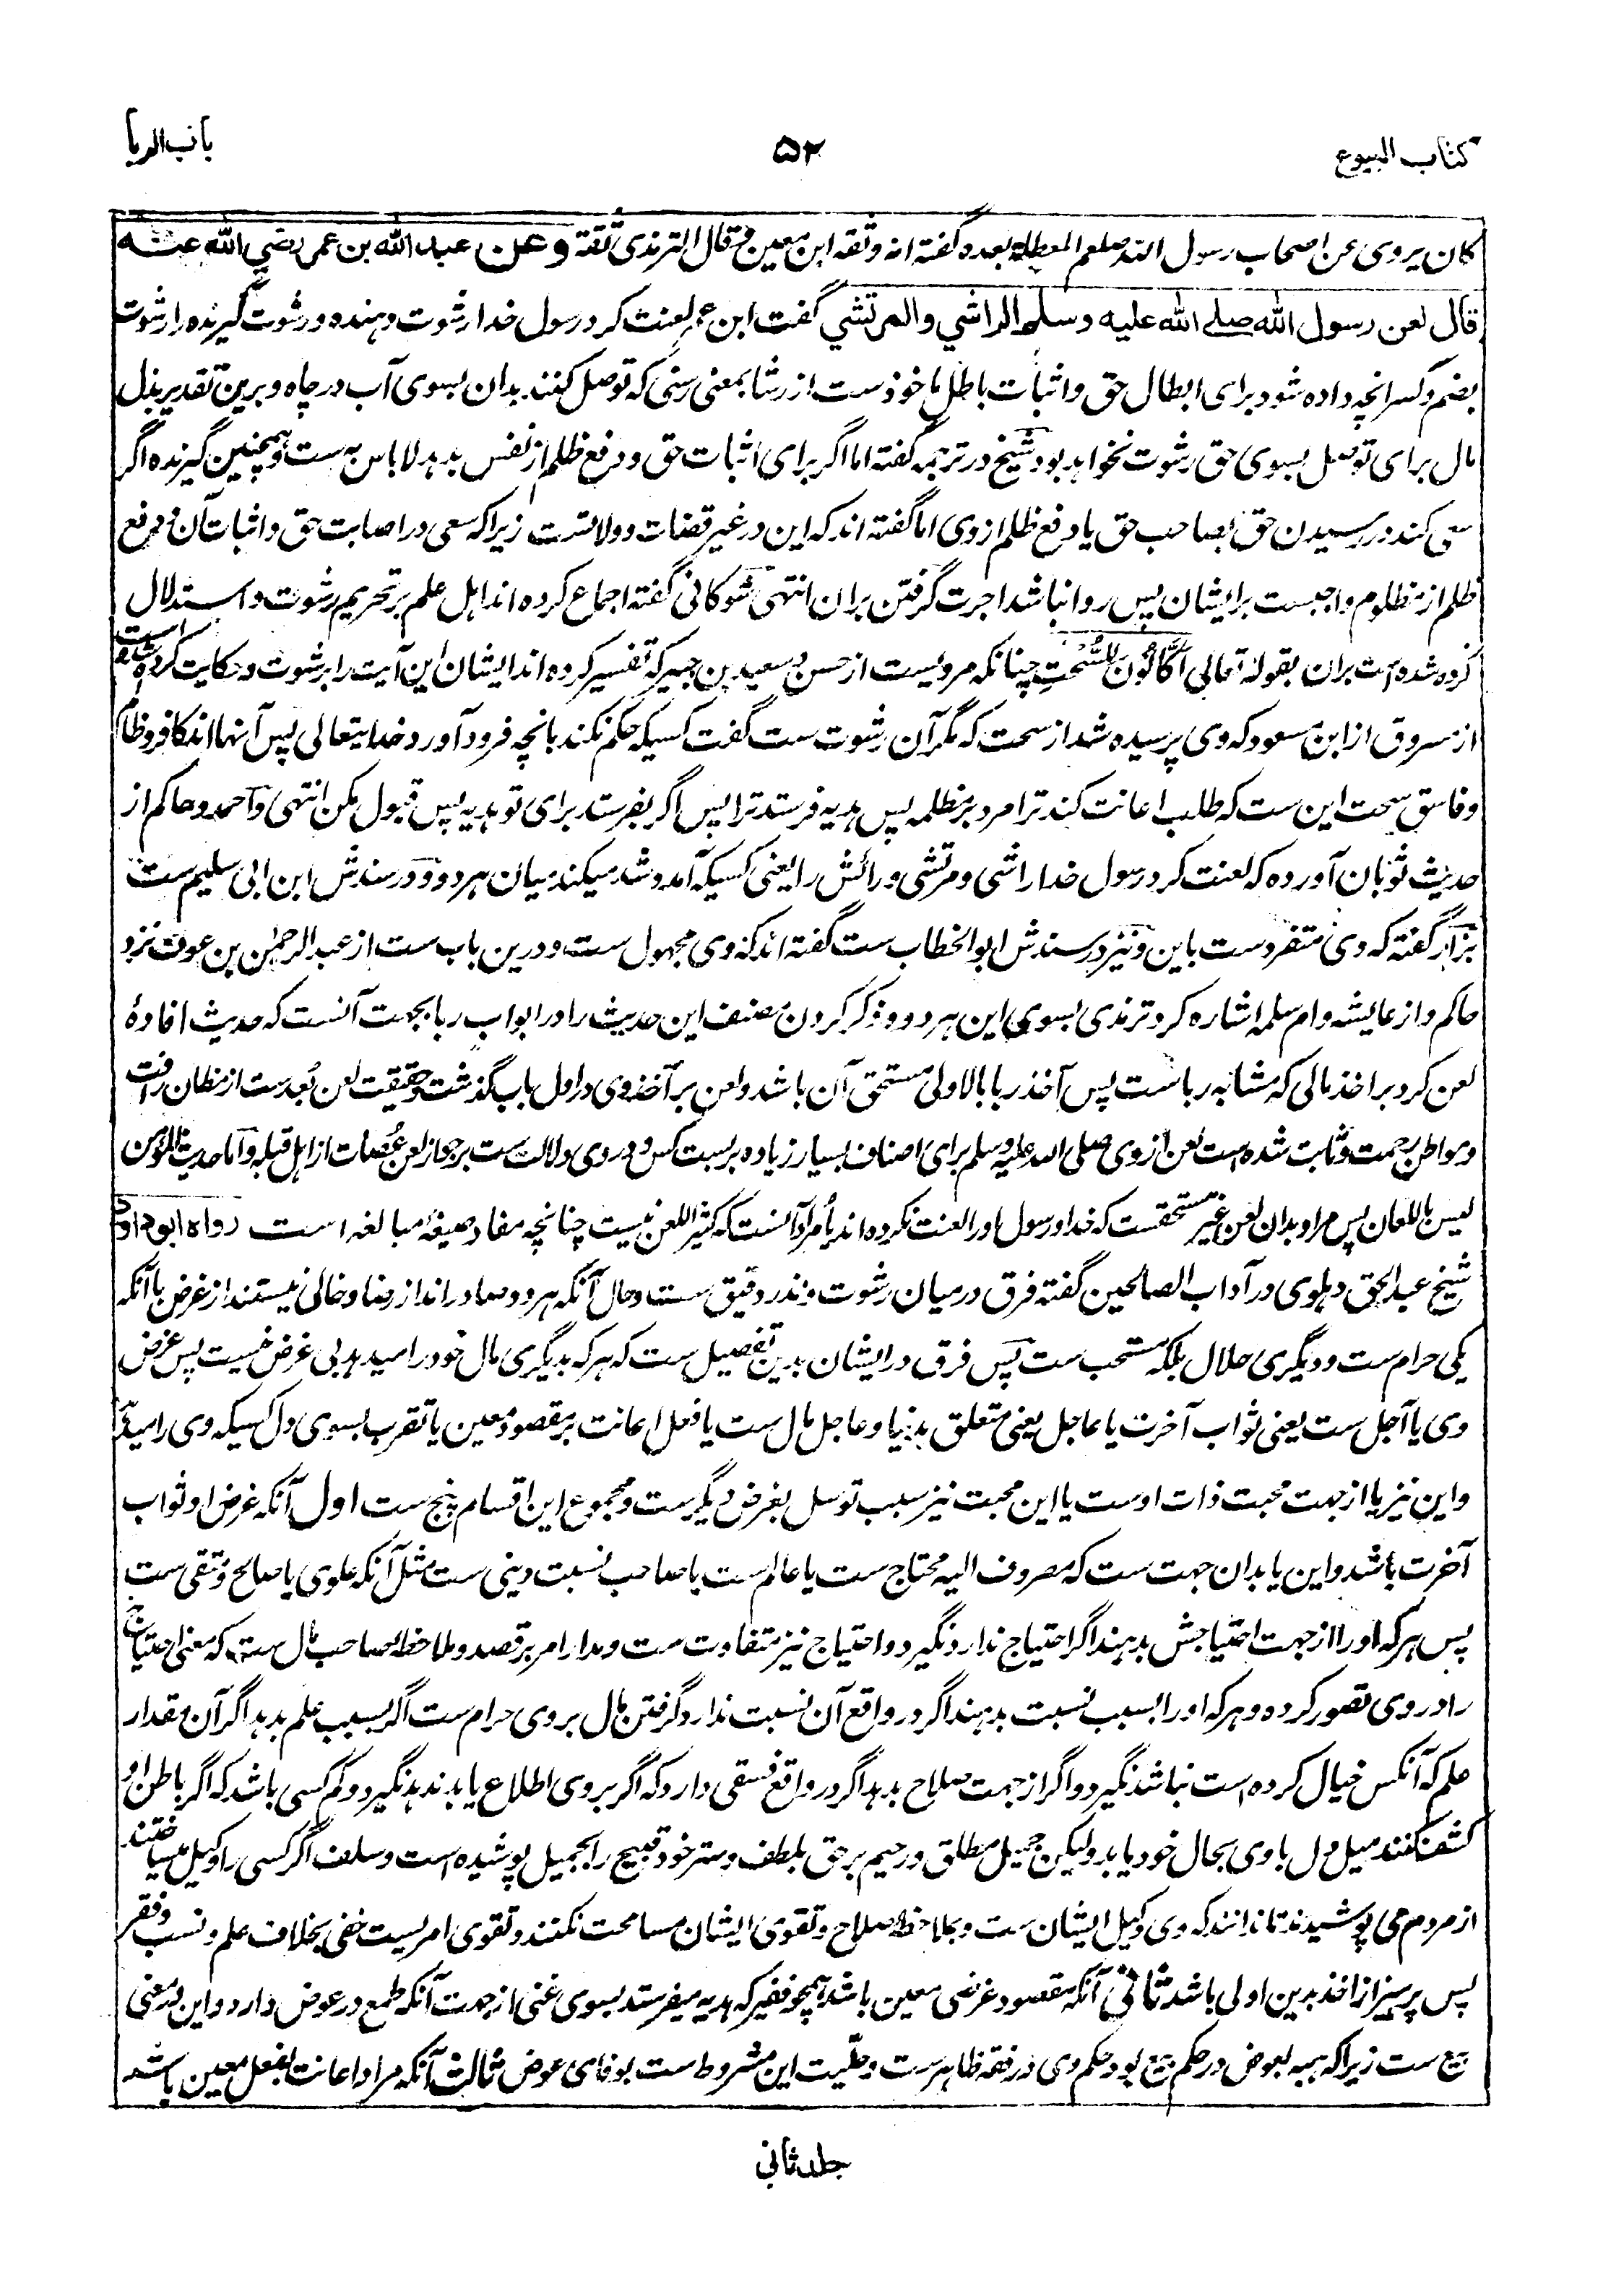 کتاب البیوع
۵۲
باب الربا
کان یروی عن اصحاب رسول الله صلعم المعطلة بعده و گفته انه وثقه ابن معین قال الترمذی ثقة وعن عبد الله بن عمر رضي الله عنه
قال لعن رسول الله صلے الله علیه وسلم الراشي والمرتشي گفت ابن عمر لعنت کرد رسول خدا رشوت دهنده و رشوت گیرنده را رشوت
بضم و کسر انچه داده شود برای ابطال حق و اثبات باطل ماخوذ ست از رشا بمعنی رسنی که توصل کنند بدان بسوی آب در چاه و برین تقدیر بذل
مال برای توصل بسوی حق رشوت نخواهد بود شیخ در ترجمه گفته اما اگر برای اثبات حق و دفع ظلم از نفس بدهد لا باس به ست و همچنین گیرنده اگر
سعی کند در رسیدن حق بصاحب حق یا دفع ظلم از وی اما گفته اند که این در غیر قضات و ولاتست زیرا که سعی در اصابت حق و اثبات آن و دفع
ظلم از مظلوم واجبست بر ایشان پس روا نباشد اجرت گرفتن بران انتهی شوکانی گفته اجماع کرده اند اهل علم بر تحریم رشوت و استدلال
کرده شده است بران بقوله تعالی اَکّٰلُوْنَ لِلسُّحْتِ چنانکه مرویست از حسن و سعید بن جبیر که تفسیر کرده اند ایشان این آیت را برشوت و حکایت کرده شده است
از مسروق از ابن مسعود که وی پرسیده شد از سحت که مگر آن رشوت ست گفت کسیکه حکم نکند بانچه فرود آورد خدایتعالی پس آنها اند کافر و ظالم
و فاسق سحت این ست که طلب اعانت کند ترا مرد بر مظلمه پس هدیه فرستد ترا پس اگر بفرستد برای تو هدیه پس قبول مکن انتهی و احمد و حاکم از
حدیث ثوبان آورده که لعنت کرد رسول خدا راشی و مرتشی و رائش را یعنی کسیکه آمد و شد میکند میان هر دو و در سندش ابن ابی سلیم ست
بزار گفته که وی متفرد ست باین و نیز در سندش ابو الخطاب ست گفته اند که وی مجهول ست و درین باب ست از عبد الرحمٰن بن عوف نزد
حاکم و از عایشه و ام سلمه اشاره کرد ترمذی بسوی این هر دو و ذکر کردن مصنف این حدیث را در ابواب ربا بجهت آنست که حدیث افادهٔ
لعن کرد بر اخذ مالی که مشابه ربا ست پس آخذ ربا بالاولی مستحق آن باشد و لعن بر آخذ وی در اول باب گذشت و حقیقت لعن بُعد ست از مظان رافت
و مواطن رحمت و ثابت شده است لعن از وی صلی الله علیه وسلم برای اصناف بسیار زیاده بر بست کس و در وی دلالت ست بر جواز لعن عُصات از اهل قبله و اما حدیث المؤمن
لیس باللعان پس مراد بدان لعن غیر مستحقست که خدا و رسول او را لعنت نکرده اند یا مراد آنست که کثیر اللعن نیست چنانچه مفاد صیغهٔ مبالغه است رواه ابو داود
شیخ عبد الحق دهلوی در آداب الصالحین گفته فرق درمیان رشوت و نذر دقیق ست و حال آنکه هر دو صادر اند از رضا و خالی نیستند از غرض با آنکه
یکی حرام ست و دیگری حلال بلکه مستحب ست پس فرق در ایشان بدین تفصیل ست که هر که بدیگری مال خود را میدهد بی غرض نیست پس غرض
وی یا آجل ست یعنی ثواب آخرت یا عاجل یعنی متعلق بدنیا و عاجل مال ست یا فعل اعانت بر مقصود معین یا تقرب بسوی دل کسیکه وی را میدهد
و این نیز یا از جهت محبت ذات اوست یا این محبت نیز سبب توسل بغرض دیگر ست و مجموع این اقسام پنج ست اول آنکه غرض او ثواب
آخرت باشد و این یا بدان جهت ست که مصروف الیه محتاج ست یا عالم ست یا صاحب نسبت دینی ست مثل آنکه علوی یا صالح و متقی ست
پس هر که او را از جهت احتیاجش بدهند اگر احتیاج ندارد نگیرد و احتیاج نیز متفاوت ست و مدار امر بر قصد و ملاحظهٔ صاحب مال ست که معنی احتیاج
را در وی تصور کرده و هر که او را بسبب نسبت بدهند اگر در واقع آن نسبت ندارد گرفتن مال بر وی حرام ست اگر بسبب علم بدهد اگر آن مقدار
علم که آنکس خیال کرده است نباشد نگیرد و اگر از جهت صلاح بدهد اگر در واقع فسقی دارد که اگر بر وی اطلاع یابد ندهد نگیرد و کم کسی باشد که اگر باطن او
کشف کنند میل دل با وی بحال خود یابد ولیکن جمیل مطلق و رحیم بر حق بلطف و ستر خود قبیح را بجمیل پوشیده است و سلف اگر کسی را وکیل میساختند
از مردم می پوشیدند تا ندانند که وی وکیل ایشان ست و بملاحظهٔ صلاح و تقوی ایشان مسامحت نکنند و تقوی امریست خفی بخلاف علم و نسب و فقر
پس پرهیز از اخذ بدین اولی باشد ثانی آنکه مقصود غرضی معین باشد همچو فقیر که هدیه میفرستد بسوی غنی از جهت آنکه طمع در عوض دارد و این در معنی
بیع ست زیرا که هبه بعوض در حکم بیع بود حکم وی در فقه ظاهر ست و حلّیت این مشروط ست بوفای عوض ثالث آنکه مراد اعانت بفعل معین باشد
جلد ثانی